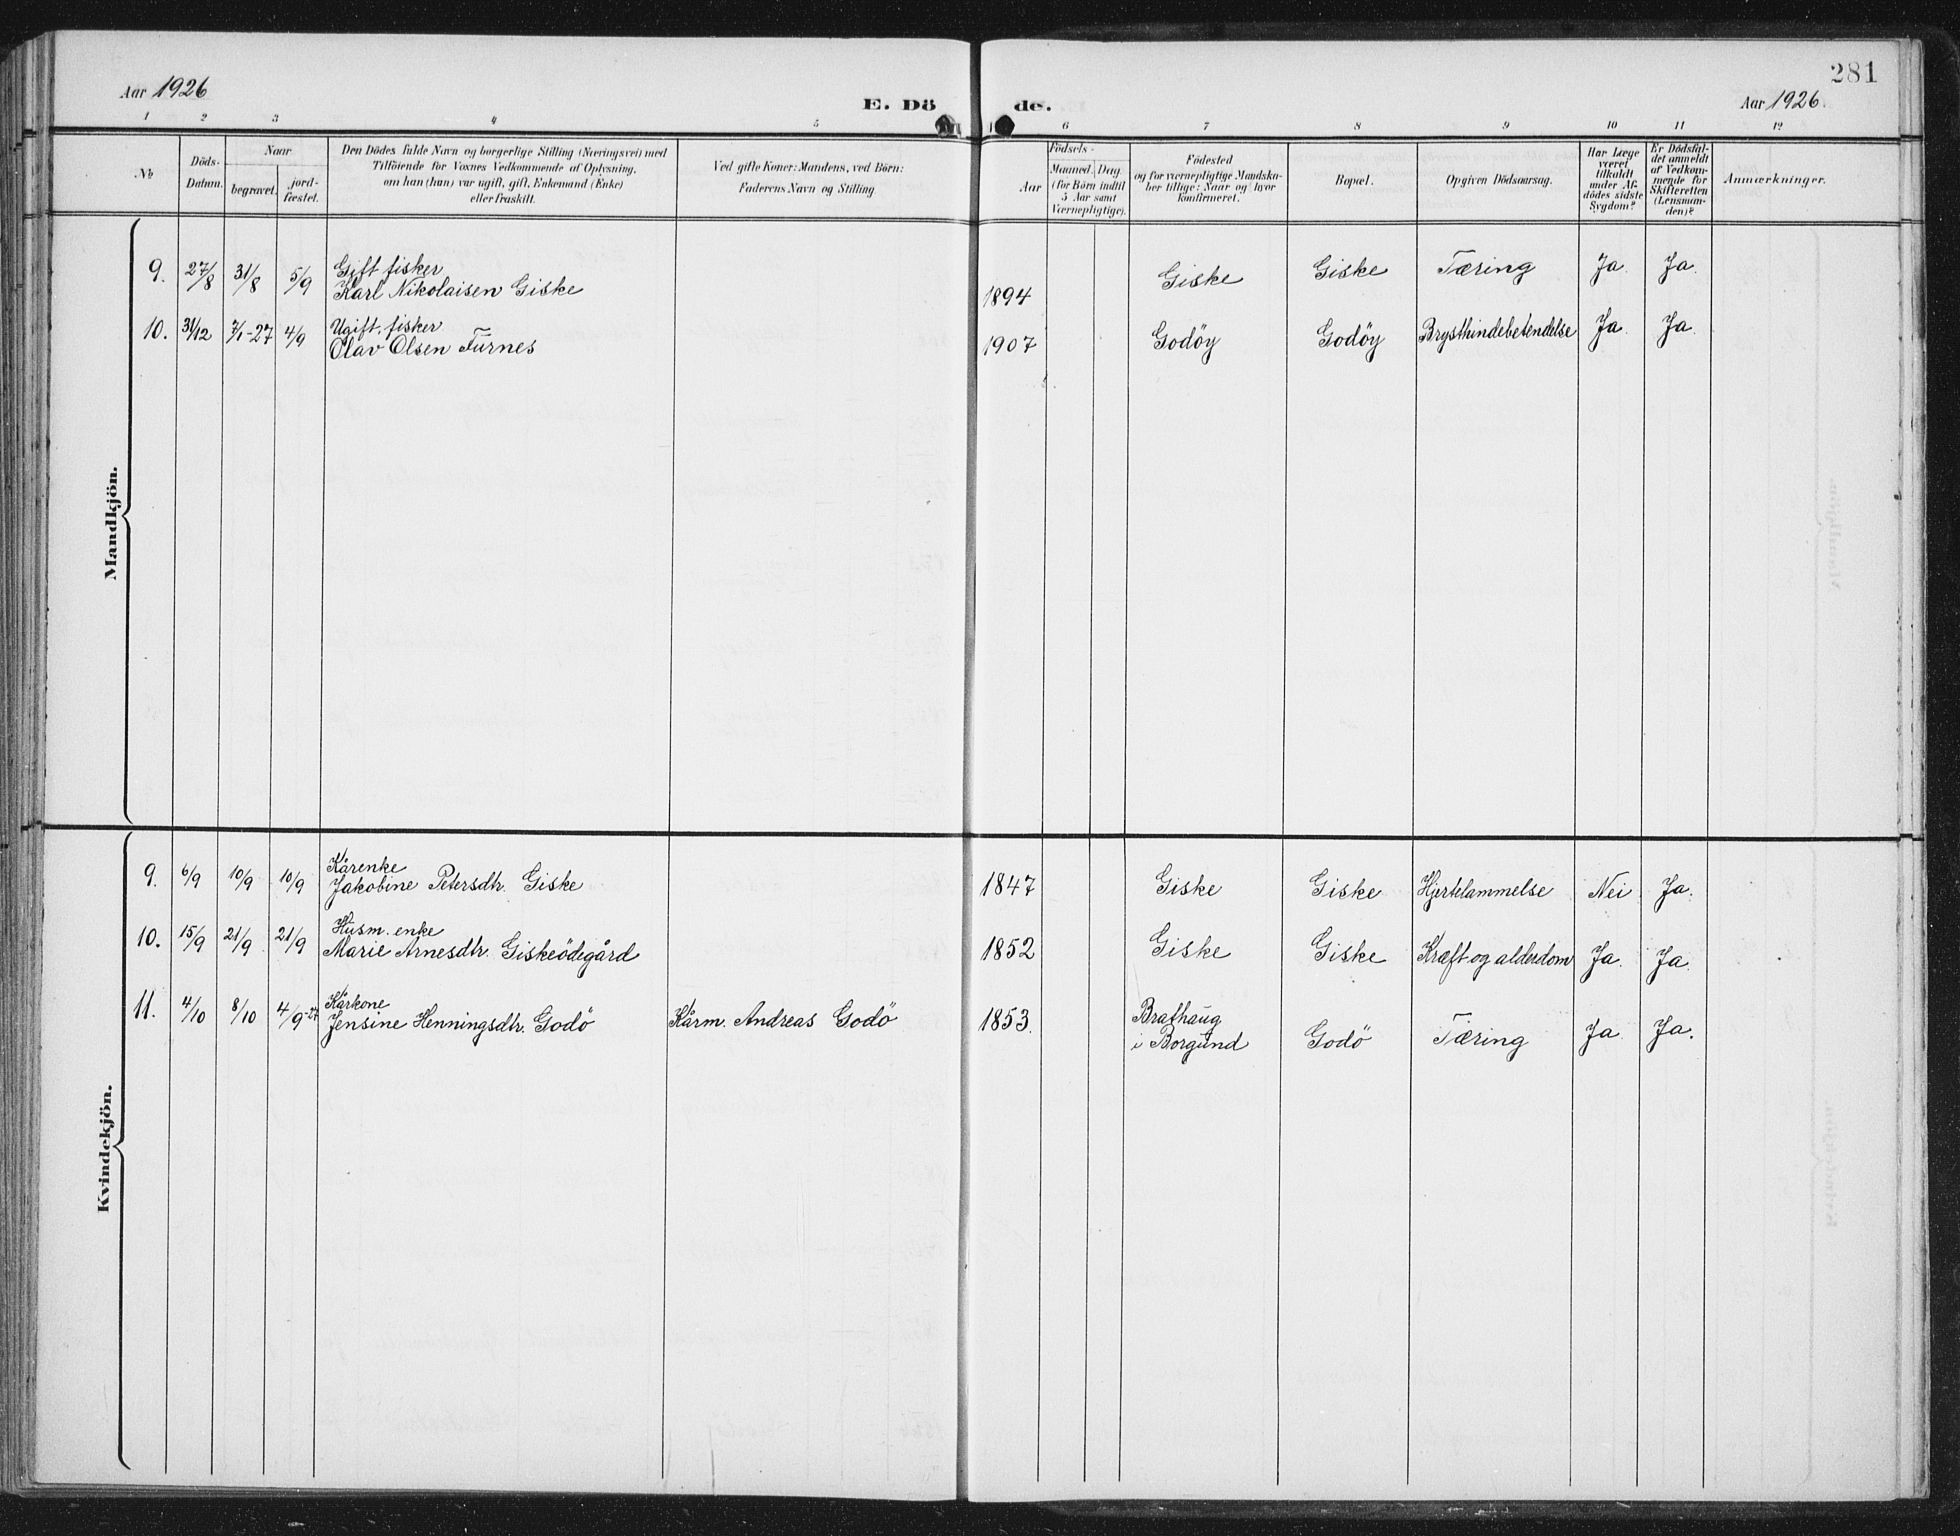 Aar 1926
E. Dö de.
281
Aar 1926.
1 2 3 4 5 6 7 8 9 10 11 12
No
Döds-
Datum.
Naar
begravet.
jord-
fæstet.
Den Dödes fulde Navn og borgerlige Stilling (Næringsvei) med
Tilföiende för Voxnes Vedkommende af Oplysning,
om han (hun) var ugift, gift, Enkemand (Enke)
eller fraskilt.
Ved gifte Koner: Mandens, ved Börn:
Faderens Navn og Stilling.
Födsels-
Aar
Maaned.
Dag.
(for Börn indtil
5 Aar samt
Værnepligtige).
Födested
og for værnepligtige Mandska-
ber tillige: Naar og hvor
konfirmeret.
Bopæl.
Opgiven Dödsaarsag.
Har Læge
været
tilkaldt
under Af-
dödes sidste
Sygdom?
Er Dödsfal-
det anmeldt
af Vedkom-
mende for
Skifteretten
(Lensman-
den)?
Anmærkninger.
Mandkjön.
9. 27/8 31/8 5/9 Gift fisker
Karl Nikolaisen Giske 1894 Giske Giske Tæring Ja. Ja.
10. 31/12 7/1-27 4/9 Ugift. fisker
Olav Olsen Furnes 1907 Godöy Godöy Brysthindebetendelse Ja. Ja.
Kvindekjön.
9. 6/9 10/9 10/9 Kårenke
Jakobine Petersdtr. Giske 1847 Giske Giske Hjertelammelse Nei Ja.
10. 15/9 21/9 21/9 Husm. enke
Marie Arnesdtr. Giskeödegård 1852 Giske Giske Kræft og alderdom Ja. Ja.
11. 4/10 8/10 4/9-27 Kårkone
Jensine Henningsdtr. Godö Kårm. Andreas Godö 1853. Brathaug
i Borgund Godö Tæring Ja. Ja.